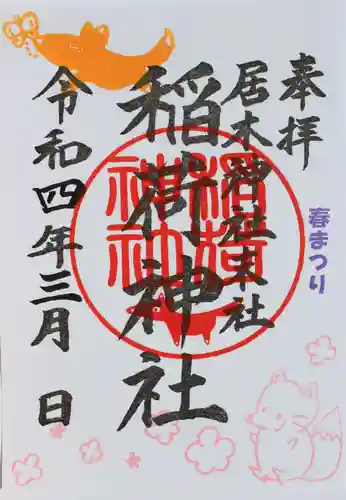 奉拝
居木神社末社
稲荷神社
令和四年三月 日
春まつり
稲荷
神社